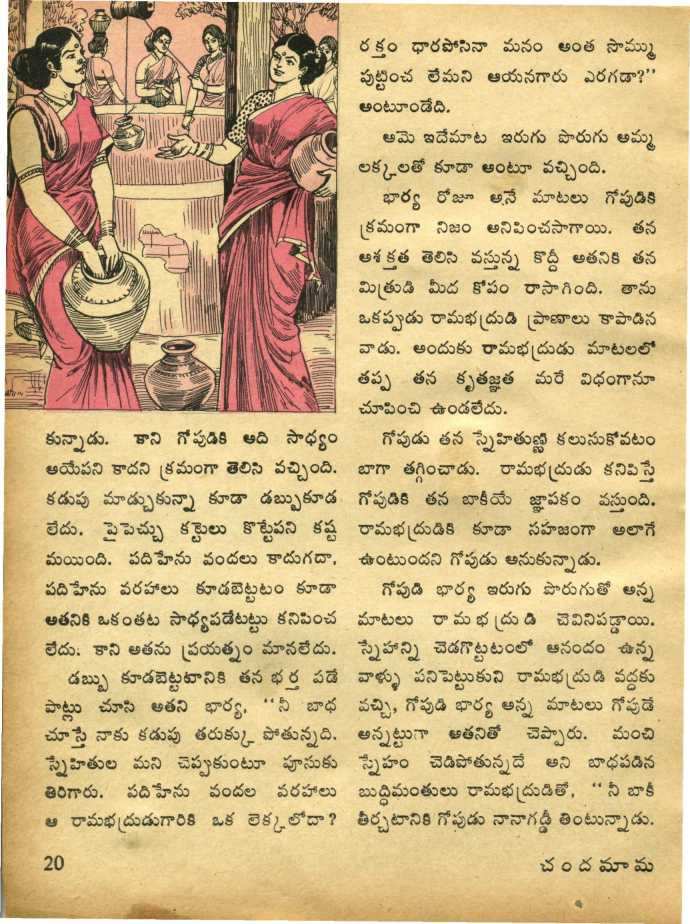 కున్నాడు. కాని గోపుడికి అది సాధ్యం
అయేపని కాదని క్రమంగా తెలిసి వచ్చింది.
కడుపు మాడ్చుకున్నా కూడా డబ్బుకూడ
లేదు. పైపెచ్చు కట్టెలు కొట్టేపని కష్ట
మయింది. పదిహేను వందలు కాదుగదా,
పదిహేను వరహాలు కూడబెట్టటం కూడా
అతనికి ఒకంతట సాధ్యపడేటట్టు కనిపించ
లేదు. కాని అతను ప్రయత్నం మానలేదు.
డబ్బు కూడబెట్టటానికి తన భర్త పడే
పాట్లు చూసి అతని భార్య, "నీ బాధ
చూస్తే నాకు కడుపు తరుక్కు పోతున్నది.
స్నేహితుల మని చెప్పుకుంటూ పూసుకు
తిరిగారు. పదిహేను వందల వరహాలు
ఆ రామభద్రుడుగారికి ఒక లెక్కలోదా?
రక్తం ధారపోసినా మనం అంత సొమ్ము
పుట్టించ లేమని ఆయనగారు ఎరగడా?"
అంటూండేది.
ఆమె ఇదేమాట ఇరుగు పొరుగు అమ్మ
లక్కలతో కూడా అంటూ వచ్చింది.
భార్య రోజూ అనే మాటలు గోపుడికి
క్రమంగా నిజం అనిపించసాగాయి. తన
అశక్తత తెలిసి వస్తున్న కొద్దీ అతనికి తన
మిత్రుడి మీద కోపం రాసాగింది. తాను
ఒకప్పుడు రామభద్రుడి ప్రాణాలు కాపాడిన
వాడు. అందుకు రామభద్రుడు మాటలలో
తప్ప తన కృతజ్ఞత మరే విధంగానూ
చూపించి ఉండలేదు.
గోపుడు తన స్నేహితుణ్ణి కలుసుకోవటం
బాగా తగ్గించాడు. రామభద్రుడు కనిపిస్తే
గోపుడికి తన బాకీయే జ్ఞాపకం వస్తుంది.
రామభద్రుడికి కూడా సహజంగా అలాగే
ఉంటుందని గోపుడు అనుకున్నాడు.
గోపుడి భార్య ఇరుగు పొరుగుతో అన్న
మాటలు రామభద్రుడి చెవినిపడ్డాయి.
స్నేహాన్ని చెడగొట్టటంలో ఆనందం ఉన్న
వాళ్ళు పనిపెట్టుకుని రామభద్రుడి వద్దకు
వచ్చి, గోపుడి భార్య అన్న మాటలు గోపుడే
అన్నట్టుగా అతనితో చెప్పారు. మంచి
స్నేహం చెడిపోతున్నదే అని బాధపడిన
బుద్ధిమంతులు రామభద్రుడితో, "నీ బాకీ
తీర్చటానికి గోపుడు నానాగడ్డీ తింటున్నాడు.
20
చందమామ